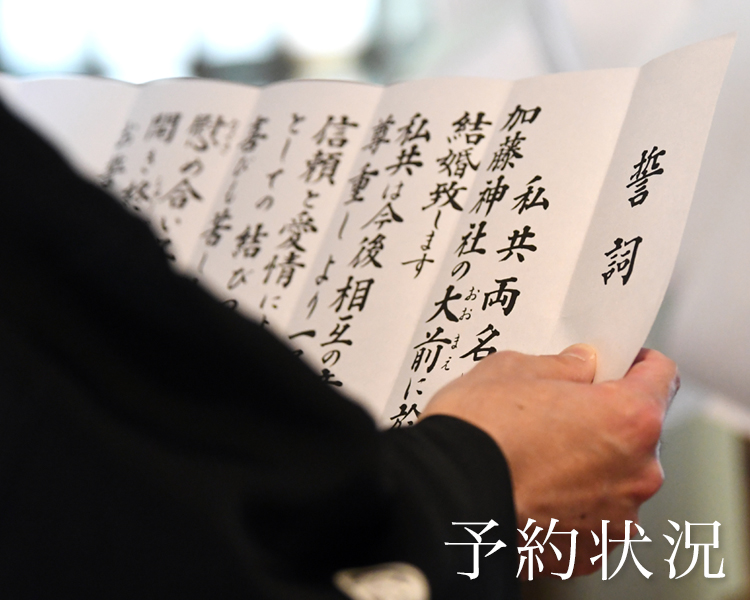 誓詞
私共両名
加藤神社の大前に於
おおまえ
結婚致します
私共は今後相互の
尊重し より一
信頼と愛情に
としての 結び
喜びも苦し
慰め合い
聞き
予約状況